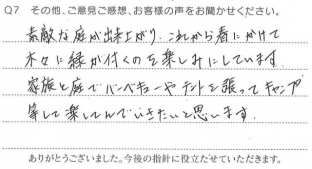 Q7 その他、ご意見ご感想、お客様の声をお聞かせください。
素敵な庭が出来上がり、これから春にかけて
木々に緑が付くのを楽しみにしています。
家族と庭でバーベキューやテントを張ってキャンプ
等して楽しんでいきたいと思います。
ありがとうございました。今後の指針に役立たせていただきます。